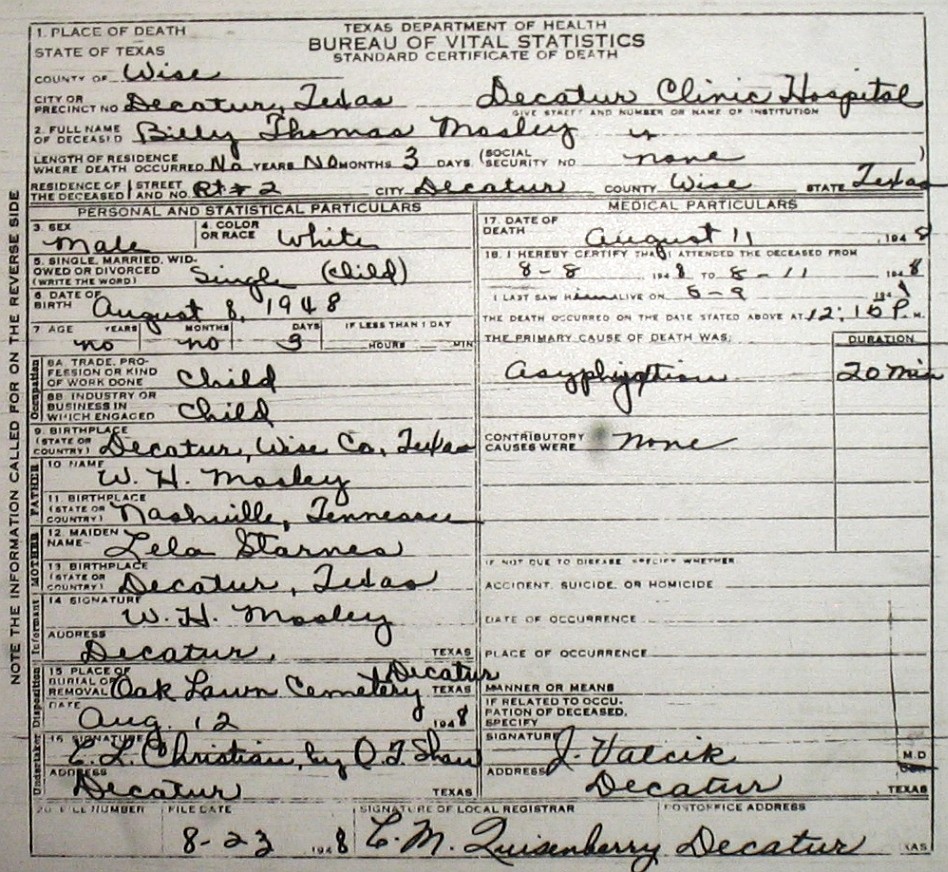 TEXAS DEPARTMENT OF HEALTH
BUREAU OF VITAL STATISTICS
STANDARD CERTIFICATE OF DEATH
1. PLACE OF DEATH
STATE OF TEXAS
COUNTY OF Wise
CITY OR PRECINCT NO. Decatur, Texas Decatur Clinic Hospital
GIVE STREET AND NUMBER OR NAME OF INSTITUTION
2. FULL NAME OF DECEASED Billy Thomas Mosley
LENGTH OF RESIDENCE WHERE DEATH OCCURRED No YEARS No MONTHS 3 DAYS (SOCIAL SECURITY NO none )
RESIDENCE OF THE DECEASED STREET AND NO. Rt # 2 CITY Decatur COUNTY Wise STATE Texas
PERSONAL AND STATISTICAL PARTICULARS
3. SEX Male 4. COLOR OR RACE White
5. SINGLE, MARRIED, WIDOWED OR DIVORCED (WRITE THE WORD) Single (child)
6. DATE OF BIRTH August 8, 1948
7 AGE YEARS MONTHS DAYS IF LESS THAN 1 DAY
no no 3 HOURS MIN
Occupation
8A. TRADE, PROFESSION OR KIND OF WORK DONE Child
8B. INDUSTRY OR BUSINESS IN WHICH ENGAGED Child
9. BIRTHPLACE (STATE OR COUNTRY) Decatur, Wise Co. Texas
FATHER
10 NAME W. H. Mosley
11. BIRTHPLACE (STATE OR COUNTRY) Nashville, Tennessee
MOTHER
12. MAIDEN NAME Lela Starnes
13. BIRTHPLACE (STATE OR COUNTRY) Decatur, Texas
Informant
14 SIGNATURE W. H. Mosley
ADDRESS Decatur, TEXAS
Disposition
15 PLACE OF BURIAL OR REMOVAL Oak Lawn Cemetery Decatur TEXAS
DATE Aug. 12 1948
Undertaker
16 SIGNATURE C. L. Christian, by O. T. Shaw
ADDRESS Decatur TEXAS
MEDICAL PARTICULARS
17. DATE OF DEATH August 11, 1948
18. I HEREBY CERTIFY THAT I ATTENDED THE DECEASED FROM
8-8 1948 TO 8-11 1948
I LAST SAW Him ALIVE ON 8-9 194
THE DEATH OCCURRED ON THE DATE STATED ABOVE AT 12:10 P. M.
THE PRIMARY CAUSE OF DEATH WAS: DURATION
Asyphixation 20 min
CONTRIBUTORY CAUSES WERE None
IF NOT DUE TO DISEASE SPECIFY WHETHER
ACCIDENT, SUICIDE, OR HOMICIDE
DATE OF OCCURRENCE
PLACE OF OCCURRENCE
MANNER OR MEANS
IF RELATED TO OCCUPATION OF DECEASED, SPECIFY
SIGNATURE J. Valcik M.D
ADDRESS Decatur TEXAS
FILE NUMBER FILE DATE SIGNATURE OF LOCAL REGISTRAR POSTOFFICE ADDRESS
8-23 1948 C. M. Quisenberry Decatur
NOTE THE INFORMATION CALLED FOR ON THE REVERSE SIDE